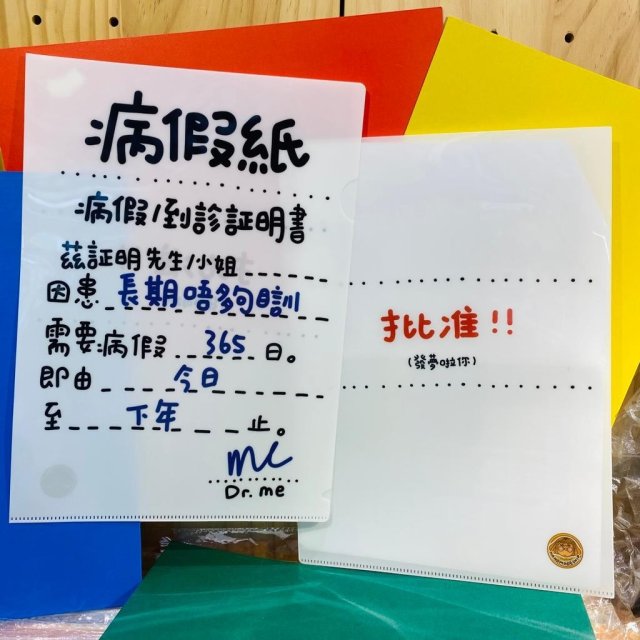 病假紙
病假/到診証明書
茲証明先生/小姐
因患 長期唔夠瞓
需要病假 365 日。
即由 今日
至 下年 止。
mc
Dr. me
批准!!
(發夢啦你)